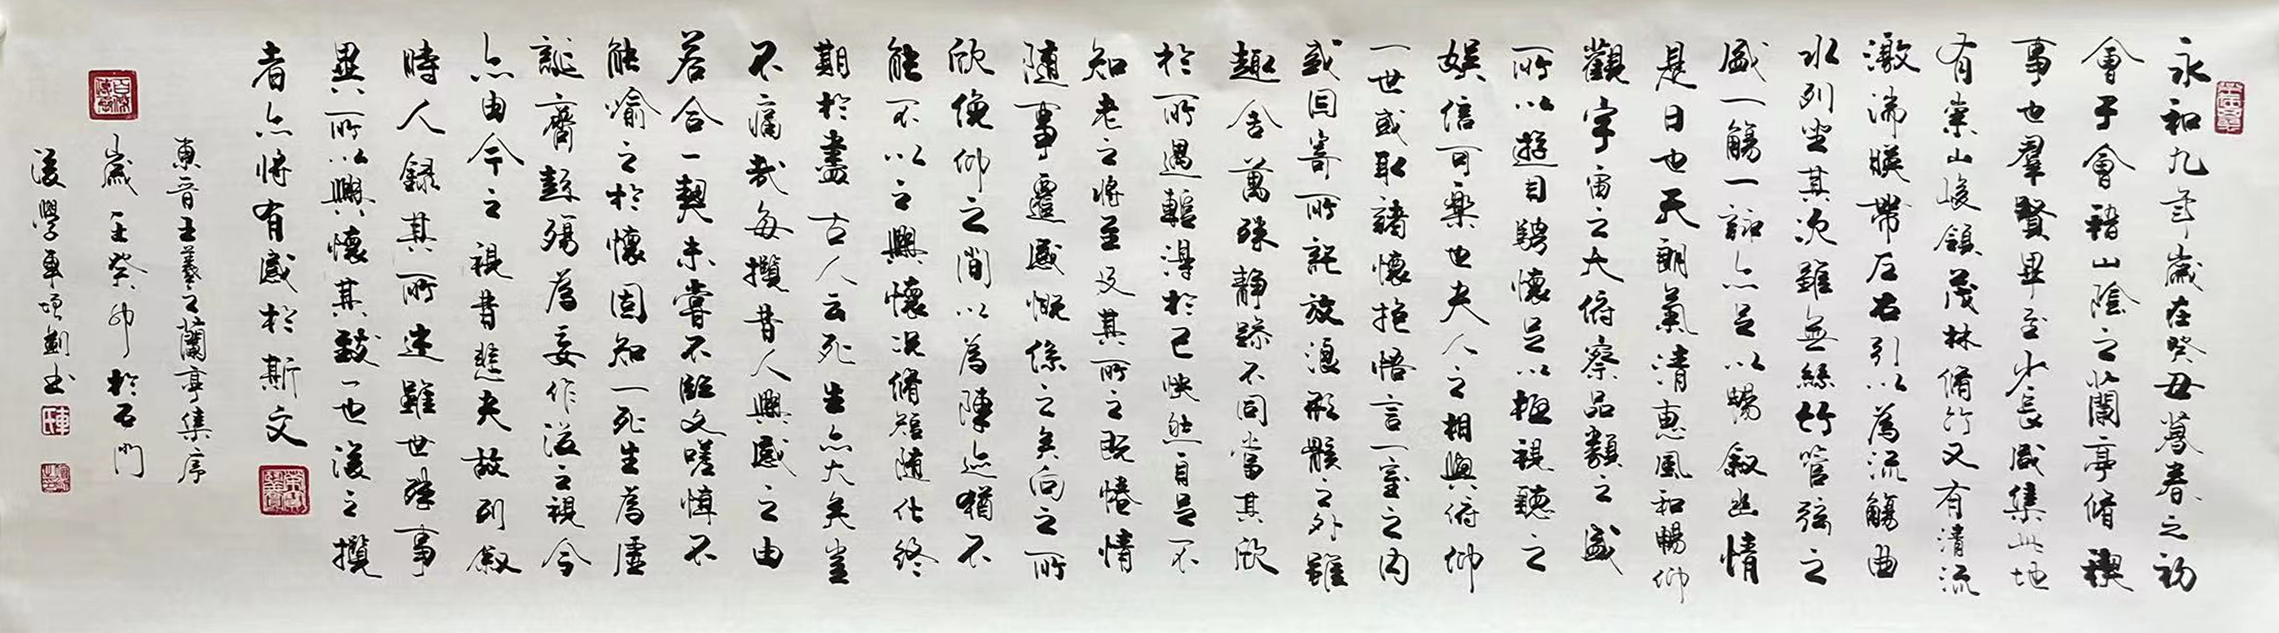 永和九年歲在癸丑暮春之初
會于會稽山陰之蘭亭脩禊
事也羣賢畢至少長咸集此地
有崇山峻領茂林脩竹又有清流
激湍暎帶左右引以為流觴曲
水列坐其次雖無絲竹管弦之
盛一觴一詠亦足以暢叙幽情
是日也天朗氣清惠風和暢仰
觀宇宙之大俯察品類之盛
所以遊目騁懷足以極視聽之
娛信可樂也夫人之相與俯仰
一世或取諸懷抱悟言一室之內
或因寄所託放浪形骸之外雖
趣舍萬殊靜躁不同當其欣
於所遇蹔得於己怏然自足不
知老之將至及其所之既惓情
隨事遷感慨係之矣向之所
欣俛仰之間以為陳迹猶不
能不以之興懷况脩短隨化終
期於盡古人云死生亦大矣豈
不痛哉每攬昔人興感之由
若合一契未嘗不臨文嗟悼不
能喻之於懷固知一死生為虛
誕齊彭殤為妄作後之視今
亦由今之視昔悲夫故列叙
時人錄其所述雖世殊事
異所以興懷其致一也後之攬
者亦將有感於斯文
東晉王羲之蘭亭集序
歲在癸卯於石門
後學車增劍書